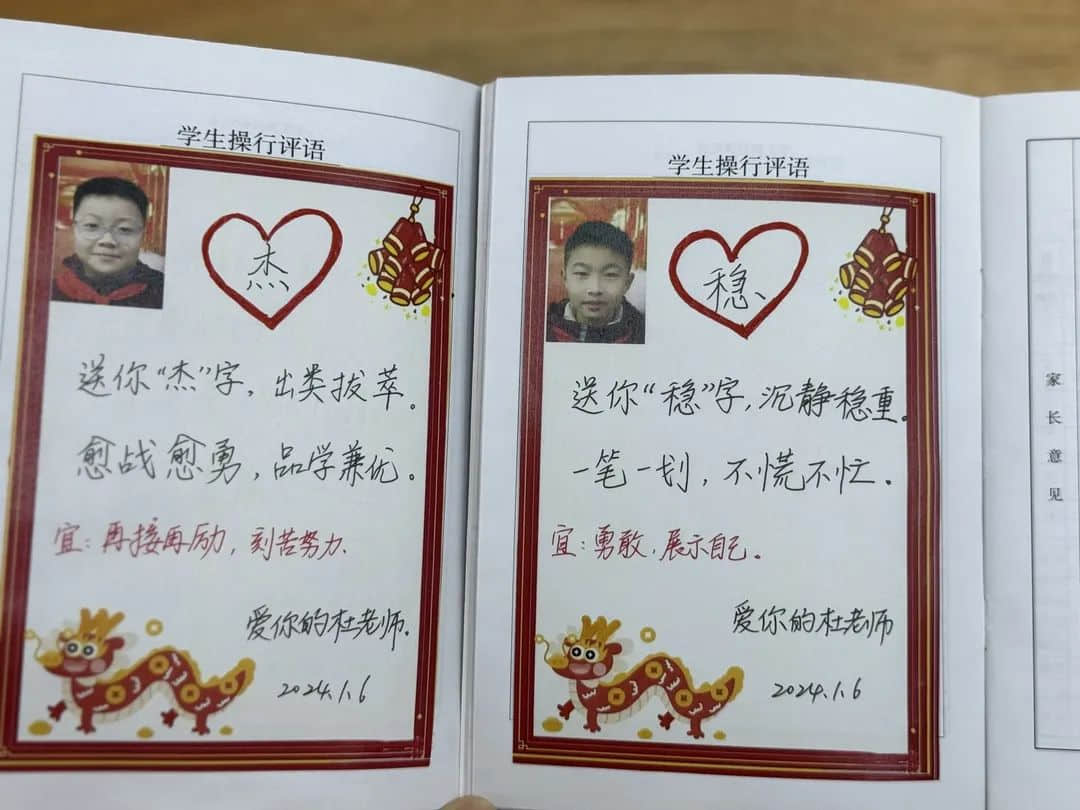 学生操行评语
杰
送你“杰”字，出类拔萃。
愈战愈勇，品学兼优。
宜：再接再励，刻苦努力.
爱你的杜老师.
2024.1.6
学生操行评语
稳
送你“稳”字，沉静稳重。
一笔一划，不慌不忙。
宜：勇敢，展示自己。
爱你的杜老师
2024.1.6
家长意见